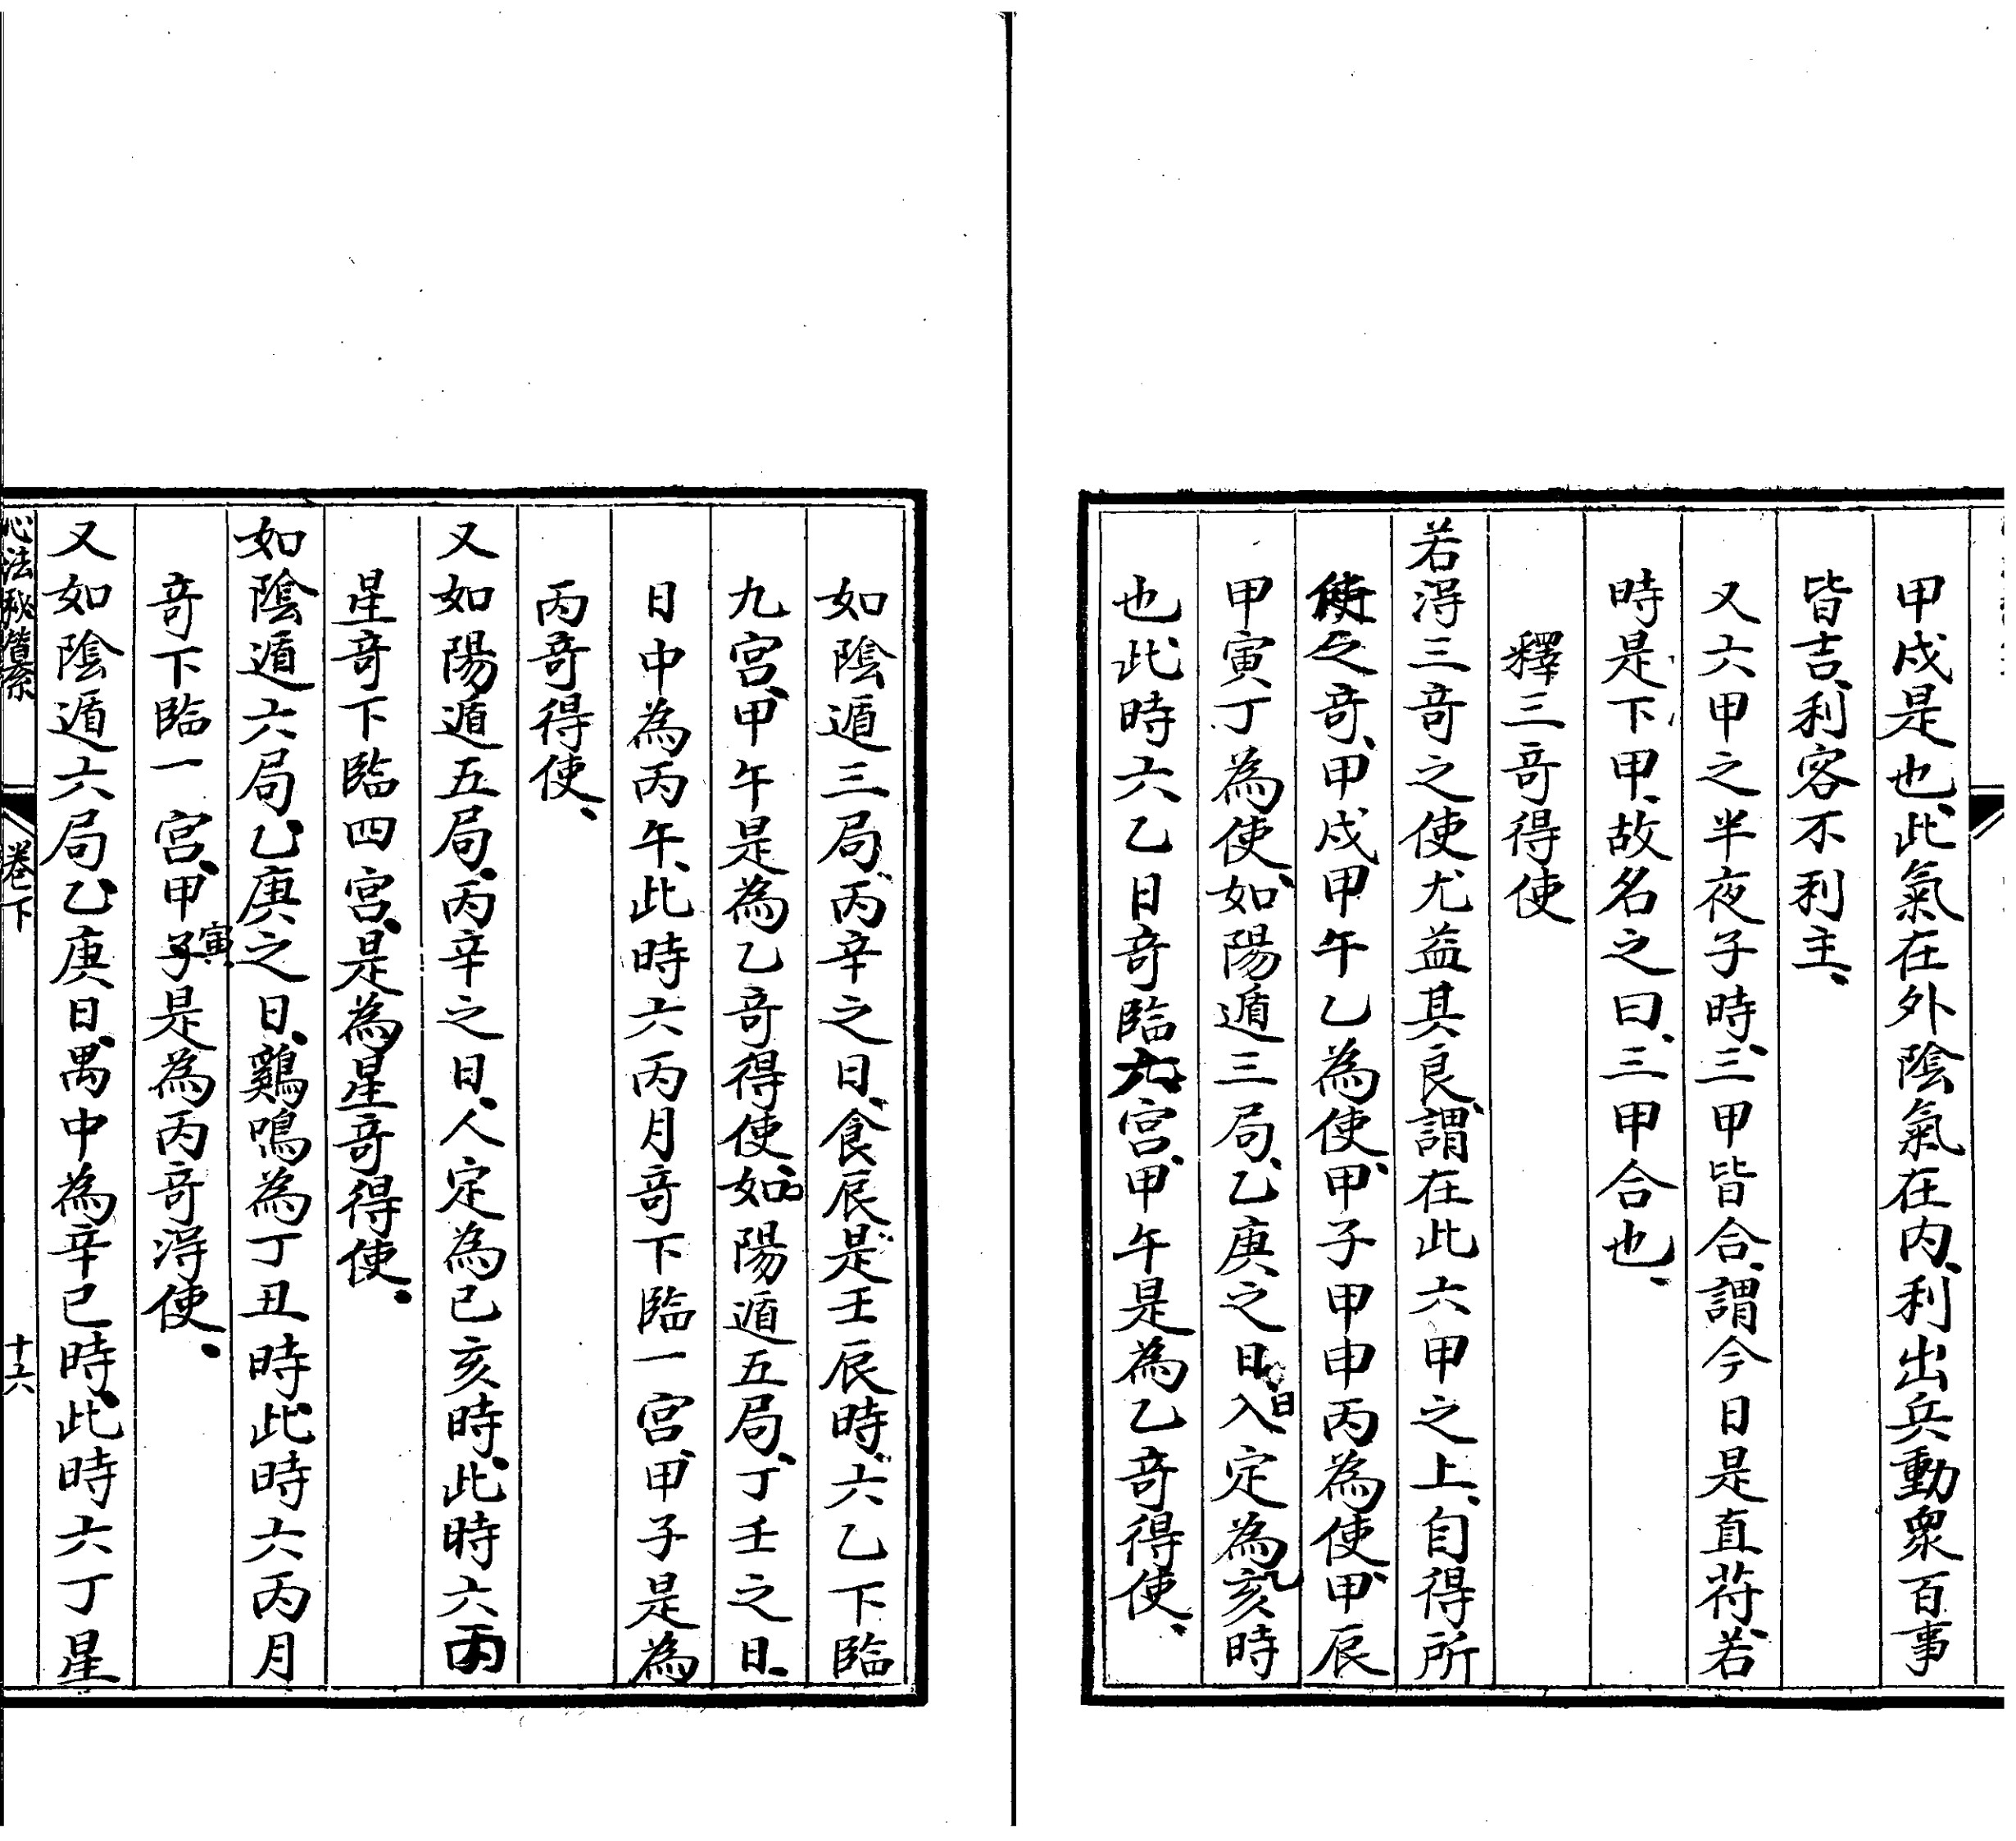 甲戍是也、此氣在外陰氣在内、利出兵動衆百事
皆吉、利客不利主、
又六甲之半夜子時、三甲皆合、謂今日是直苻、若
時是下甲、故名之曰、三甲合也、
釋三竒得使
若淂三竒之使尤益其良、謂在此六甲之上、自得所
使之竒、甲戍甲午乙為使、甲子甲申丙為使、甲辰
甲寅丁為使、如陽遁三局、乙庚之日、入定為亥時
也、此時六乙日竒臨九宫、甲午是為乙竒得使、
如陰遁三局、丙辛之日、食辰是壬辰時、六乙下臨
九宫、甲午是為乙竒得使、如陽遁五局、丁壬之日、
日中為丙午、此時六丙月竒下臨一宫、甲子是為
丙竒得使、
又如陽遁五局、丙辛之日、人定為已亥時、此時六丙
星竒下臨四宫、是為星竒得使、
如陰遁六局、乙庚之日、鷄鳴為丁丑時、此時六丙月
竒下臨一宫、甲子寅是為丙竒淂使、
又如陰遁六局、乙庚日、禺中為辛已時、此時六丁星
心法秘僣索
卷下
十六